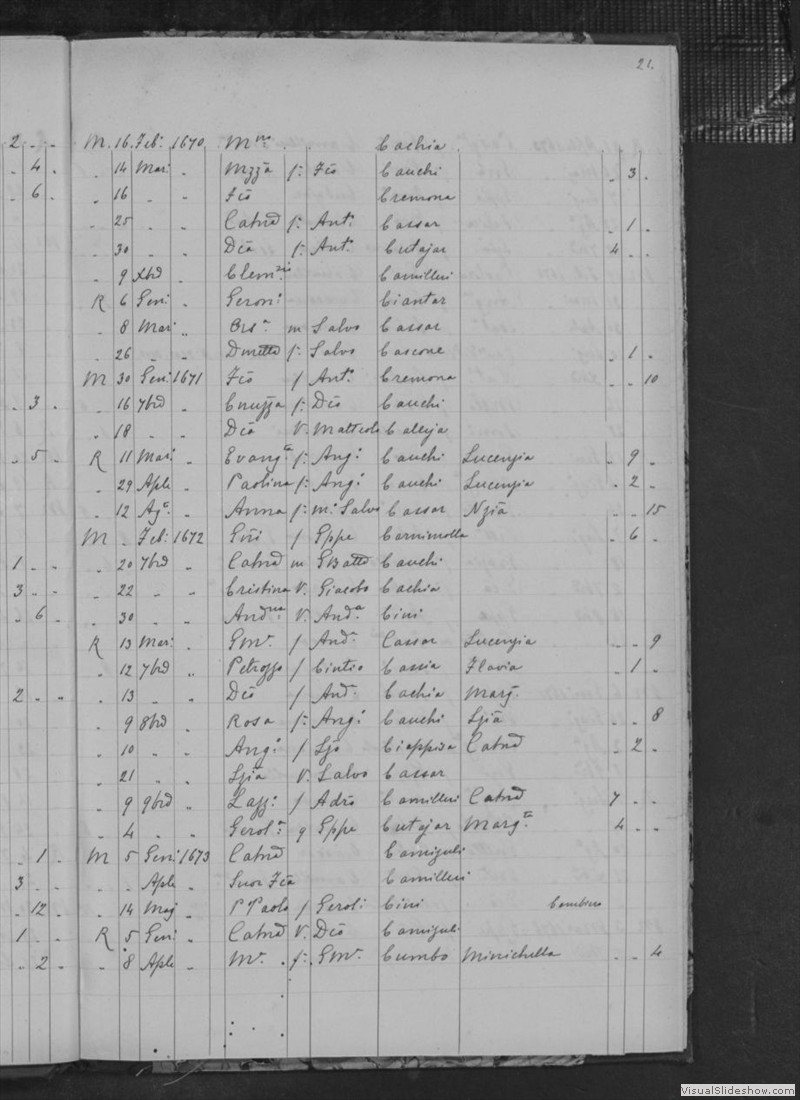 21.
2 . . M. 16. Feb: 1670. Mna. Cachia
. 4 . " 14 Mar: " Mzza f: Fco Cauchi . 3 .
. 6 . " 16 " " Fco Cremona
" 25 " " Catna f: Anto Cassar . 1 .
" 30 " " Dca f: Anto Cutajar 4 . .
" 9 Xbre " Clem Camilleri
R 6 Gen: " Geron: Ciantar
" 8 Mar: " Ors.a m Salvo Cassar
" 26 " f: Salvo Cascone . 1 .
M 30 Gen: 1671 Fco f Anto Cremona . . 10
. 3 . " 16 7bre " Cnuzza f: Dco Cauchi
" 18 " " Dca V. Matteolo Calleja
. 5 . R 11 Mar: " Evang.ta f: Ang: Cauchi Lucenzia . 9 .
" 29 Aple " Paolina f: Ang: Cauchi Lucenzia . 2 .
" 12 Ag.o " Anna f: m: Salvo Cassar Nzia . . 15
M " Feb: 1672 f Gppe . 6 .
1 . . " 20 7bre " Catna m GBatta Cauchi
3 . . " 22 " " Cristina V. Giacobo Cachia
. 6 . " 30 " " Andna V. And.a Cini
R 13 Mar: " Gmr. f And. Cassar Lucenzia . . 9
" 12 7bre " Petrozzo f Cintio Cassia Flavia . 1 .
2 . . " 13 " " Dco f And. Cachia Marg.
" 9 8bre " Rosa f: Ang: Cauchi Ljia . . 8
" 10 " " Ang: f Ljo Ciappisa Catna . 2 .
" 21 " " Ljia V. Salvo Cassar
" 9 9bre " Lazz: f Adro Camilleri Catna 7 . .
" 4 " " Gerol.a q Gppe Cutajar Marg.ta 4 . .
. 1 . M 5 Gen: 1673 Catna Camiguli
3 . . " . Aple " Suor Fca Camilleri
. 12 . " 14 Maj " P Paolo f Geroli: Cini bambino
1 . . R 5 Gen: " Catna V. Dco Camiguli
. 2 . " 8 Aple " Mr. f: Gmr. Cumbo Minichella . . 4
VisualSlideshow.com